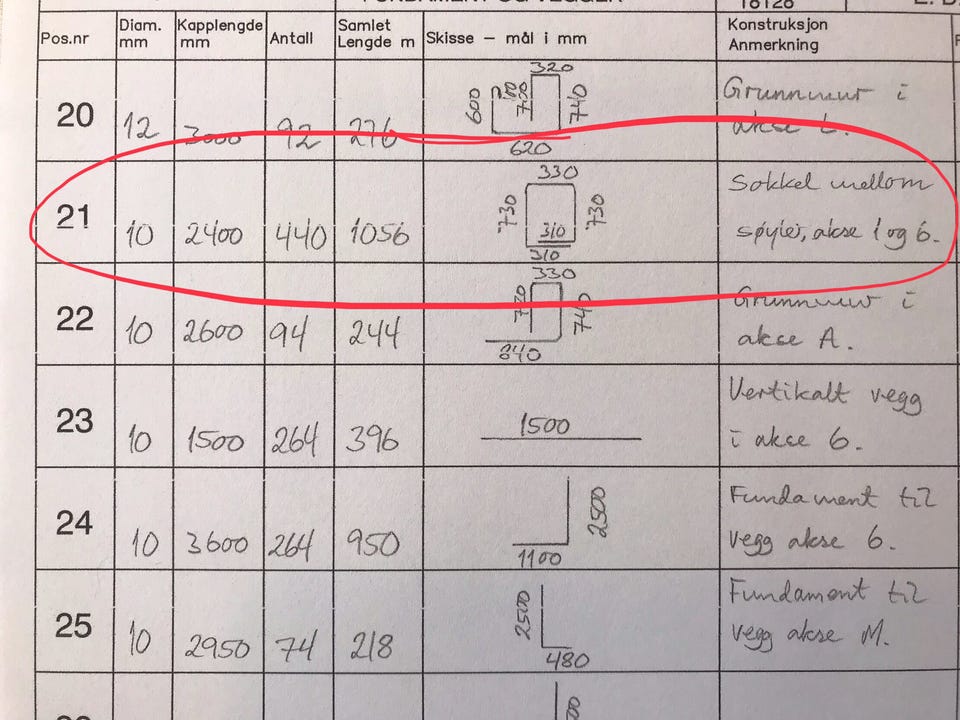 FUNDAMENT OG VEGGER
Pos.nr Diam. mm Kapplengde mm Antall Samlet Lengde m Skisse – mål i mm Konstruksjon Anmerkning
20 12 3000 92 276
320
600 740
620
Grunnmur i
akse L.
21 10 2400 440 1056
330
730 730
310
310
Sokkel mellom
søyler, akse 1 og 6.
22 10 2600 94 244
330
740
640
Grunnmur i
akse A.
23 10 1500 264 396
1500
Vertikalt vegg
i akse 6.
24 10 3600 264 950
2500
1100
Fundament til
vegg akse 6.
25 10 2950 74 218
2500
480
Fundament til
vegg akse M.